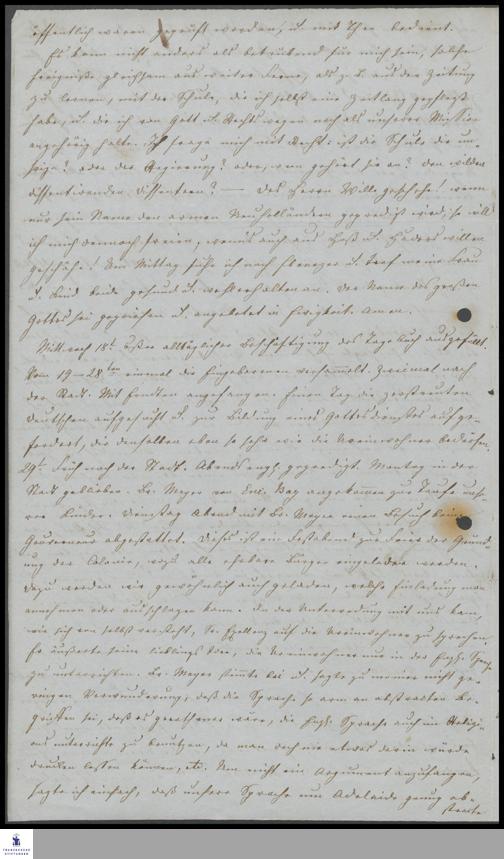 öffentlich waren geprüft worden, u. mit Thee bedient.
Es kann nicht anders als betrübend für mich sein, solche
Ereigniße gleichsam aus weiter Ferne, als z. B. aus der Zeitung
zu lernen, mit der Schule, die ich selbst eine Zeitlang gepflegt
habe, u. die ich von Gott u. Rechts wegen noch als unserer Mission
angehörig halte. Ich frage mich mit Recht: ist die Schule die un-
srige? oder der Regierung? oder, wem gehört sie an? den wilden
dissentirenden Dissentern? — Des Herrn Wille geschehe! wenn
nur sein Name den armen Neuholländern gepredigt wird, so will
ich mich dennoch freuen, wenn's auch aus Haß u. Haders willen
geschähe! Am Mittag fuhr ich nach Ebenezer u. traf meine Frau
u. Kind beide gesund u. wohlerhalten an. Der Name des großen
Gottes sei gepriesen u. angebetet in Ewigkeit. Amen.
Mittwoch 18t. Außer alltäglicher Beschäftigung des Tage Buch ausgefüllt.
Vom 19–28ten einmal die Eingebornen versammelt. Zweimal nach
der Stadt. Mit angefangen. Einen Tag die zerstreuten
Deutschen aufgesucht u. zur Bildung eines Gottesdienstes aufge-
fordert, die denselben eben so sehr wie die Ureinwohner bedürfen.
29t. Früh nach der Stadt. Abends engl. gepredigt. Montag in der
Stadt geblieben. Br. Meyer von Enc. Bay angekommen zur Taufe uns-
rer Kinder. Dienstag Abend mit Br. Meyer einen Besuch beim
Gouverneur abgestattet. Dieses ist ein Festabend zur Feier der Gründ-
ung der Colonie, wozu alle ehrbare Bürger eingeladen werden.
Dazu werden wir gewöhnlich auch geladen, welche Einladung man
annehmen oder ausschlagen kann. In der Unterredung mit uns kam,
wie sich von selbst versteht, Sr. Exellenz auf die Ureinwohner zu sprechen.
Er äußerte seine Lieblings Idee, die Ureinwohner nur in der Engl. Sprache
zu unterrichten. Br. Meyer stimmte bei u. sagte zu meiner nicht ge-
ringen Verwunderung, daß die Sprache so arm an abstracten Be-
griffen sei, daß es gerathener wäre, die Engl. Sprache auch im Religi-
ons unterrichte zu benutzen, da man doch nie etwas darin würde
drucken lassen können, etc. Um nicht ein Argument anzufangen,
sagte ich einfach, daß unsere Sprache um Adelaide genug ab-
stracte
FRANCKESCHE STIFTUNGEN